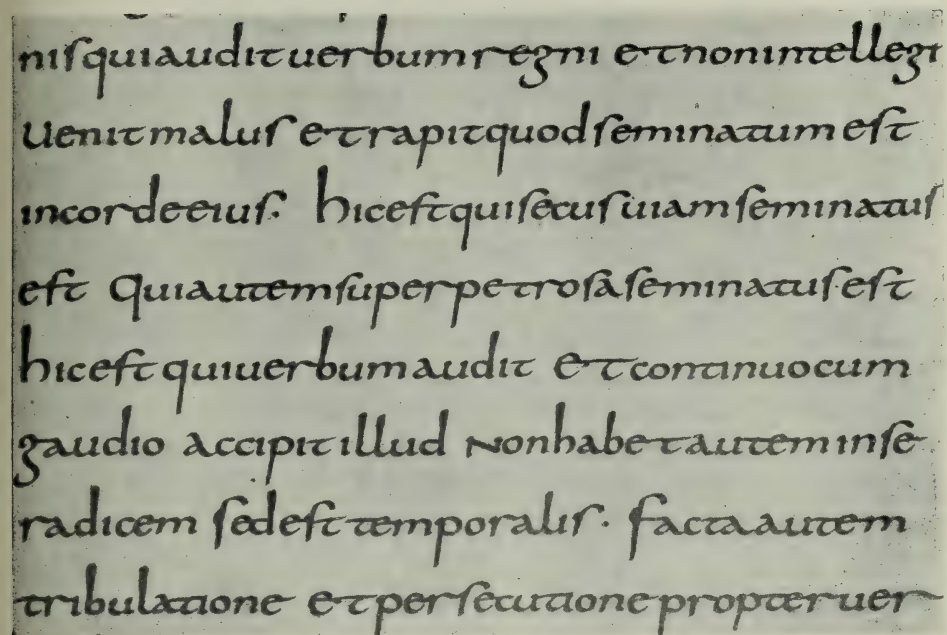 nisquiaudituerbumregni etnonintellegi
Uenitmalus etrapitquodseminatumest
incordeeius. hicestquisecusuiamseminatus
est Quiautemsuperpetrosaseminatusest
hicestquiuerbumaudit Etcontinuocum
gaudio accipitillud Nonhabetauteminse
radicem sedesttemporalis. factaautem
tribulatione etpersecutionepropteruer